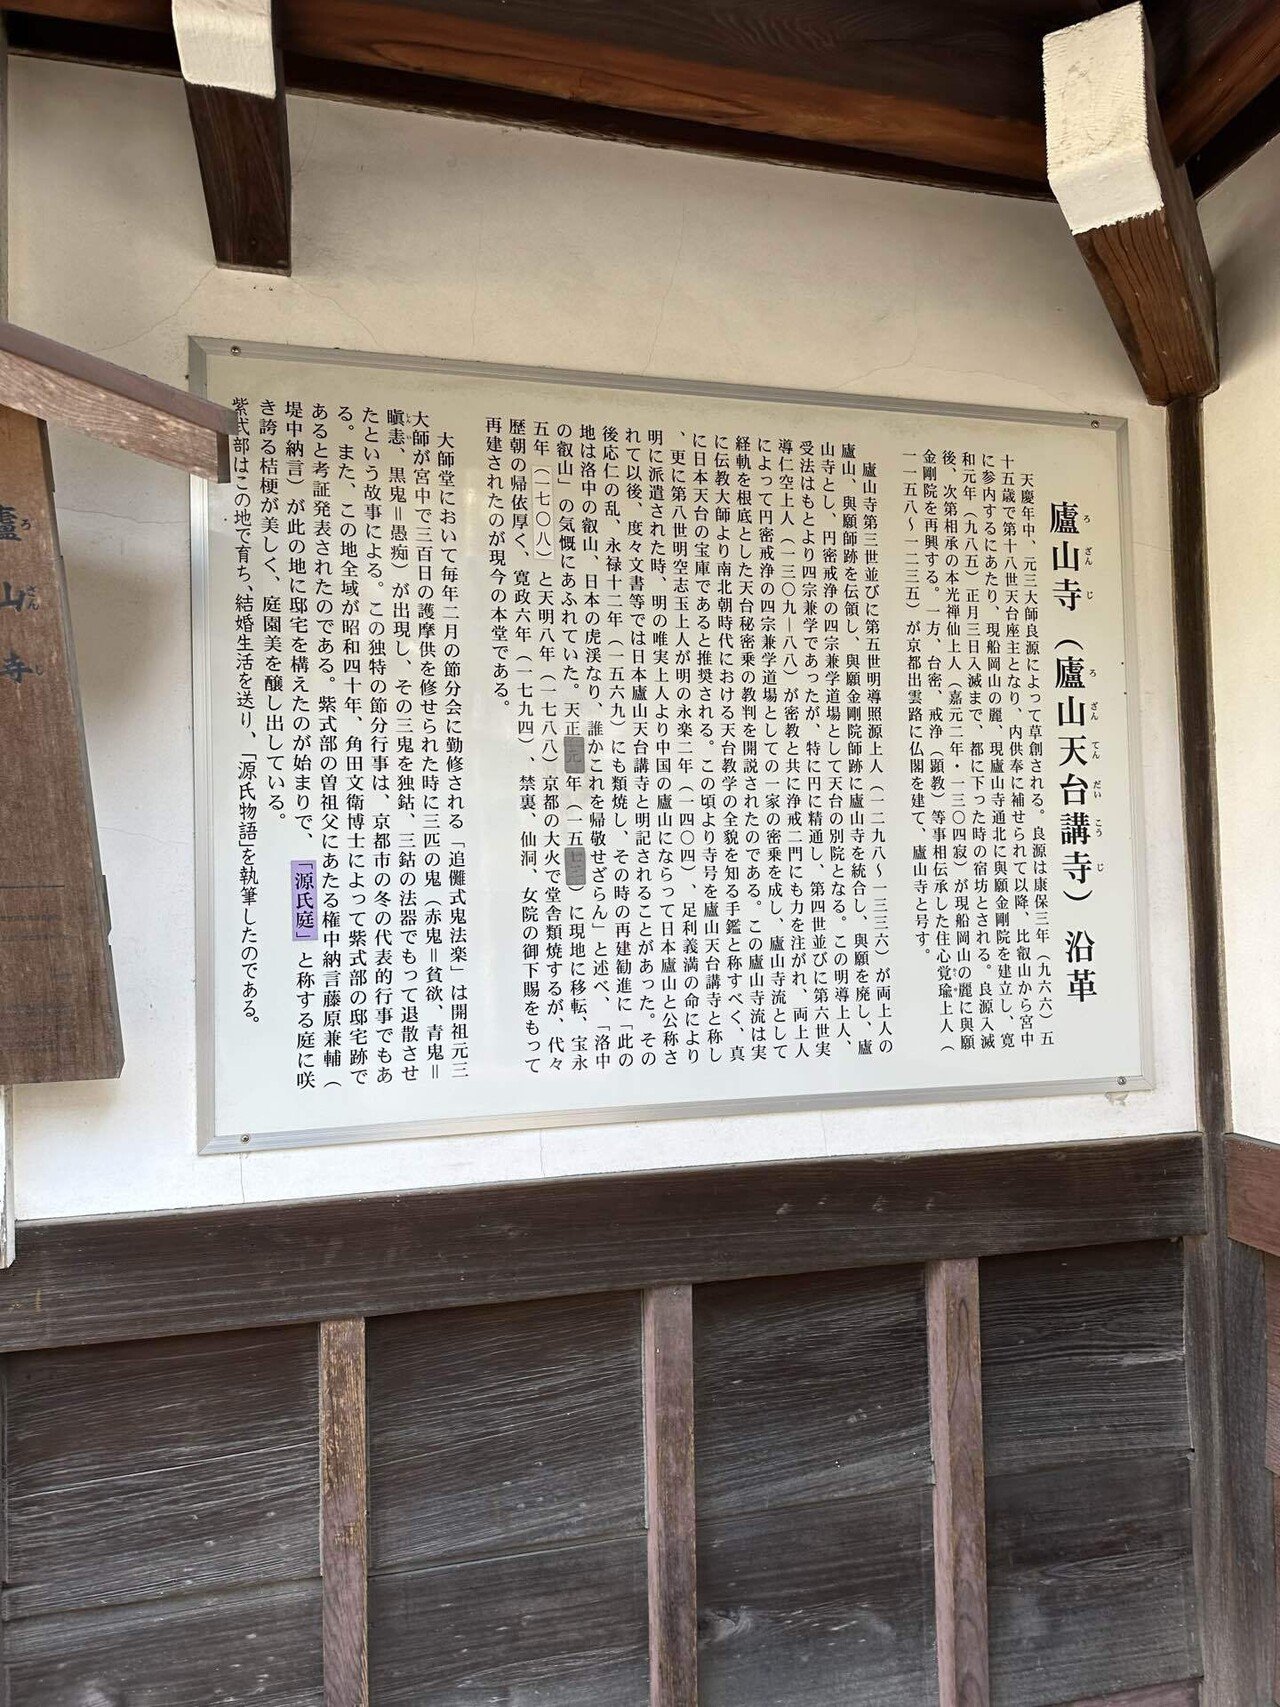 廬山寺（廬山天台講寺）沿革
ろざんじ ろざんてんだいこうじ
天慶年中、元三大師良源によって草創される。良源は康保三年（九六六）五
十五歳で第十八世天台座主となり、内供奉に補せられて以降、比叡山から宮中
に参内するにあたり、現船岡山の麗、現廬山寺通北に與願金剛院を建立し、寛
和元年（九八五）正月三日入滅まで、都に下った時の宿坊とされる。良源入滅
後、次第相承の本光禅仙上人（嘉元二年・一三〇四寂）が現船岡山の麗に與願
金剛院を再興する。一方、台密、戒浄（顕教）等事相伝承した住心覚瑜上人（
一一五八～一二三五）が京都出雲路に仏閣を建て、廬山寺と号す。
廬山寺第三世並びに第五世明導照源上人（一二九八～一三三六）が両上人の
廬山、與願師跡を伝領し、與願金剛院師跡に廬山寺を統合し、與願を廃し、廬
山寺とし、円密戒浄の四宗兼学道場として天台の別院となる。この明導上人、
受法はもとより四宗兼学であったが、特に円に精通し、第四世並びに第六世実
導仁空上人（一三〇九－八八）が密教と共に浄戒二門にも力を注がれ、両上人
によって円密戒浄の四宗兼学道場としての一家の密乗を成し、廬山寺流として
経軌を根底とした天台秘密乗の教判を開説されたのである。この廬山寺流は実
に伝教大師より南北朝時代における天台教学の全貌を知る手鑑と称すべく、真
に日本天台の宝庫であると推奨される。この頃より寺号を廬山天台講寺と称し
、更に第八世明空志玉上人が明の永楽二年（一四〇四）、足利義満の命により
明に派遣された時、明の唯実上人より中国の廬山にならって日本廬山と公称さ
れて以後、度々文書等では日本廬山天台講寺と明記されることがあった。その
後応仁の乱、永禄十二年（一五六九）にも類焼し、その時の再建勧進に「此の
地は洛中の叡山、日本の虎渓なり、誰かこれを帰敬せざらん」と述べ、「洛中
の叡山」の気慨にあふれていた。天正元年（一五七三）に現地に移転、宝永
五年（一七〇八）と天明八年（一七八八）京都の大火で堂舎類焼するが、代々
歴朝の帰依厚く、寛政六年（一七九四）、禁裏、仙洞、女院の御下賜をもって
再建されたのが現今の本堂である。
大師堂において毎年二月の節分会に勤修される「追儺式鬼法楽」は開祖元三
大師が宮中で三百日の護摩供を修せられた時に三匹の鬼（赤鬼＝貧欲、青鬼＝
瞋恚、黒鬼＝愚痴）が出現し、その三鬼を独鈷、三鈷の法器でもって退散させ
たという故事による。この独特の節分行事は、京都市の冬の代表的行事でもあ
る。また、この地全域が昭和四十年、角田文衛博士によって紫式部の邸宅跡で
あると考証発表されたのである。紫式部の曽祖父にあたる権中納言藤原兼輔（
堤中納言）が此の地に邸宅を構えたのが始まりで、「源氏庭」と称する庭に咲
き誇る桔梗が美しく、庭園美を醸し出している。
紫式部はこの地で育ち、結婚生活を送り、「源氏物語」を執筆したのである。
廬山寺
ろざんじ